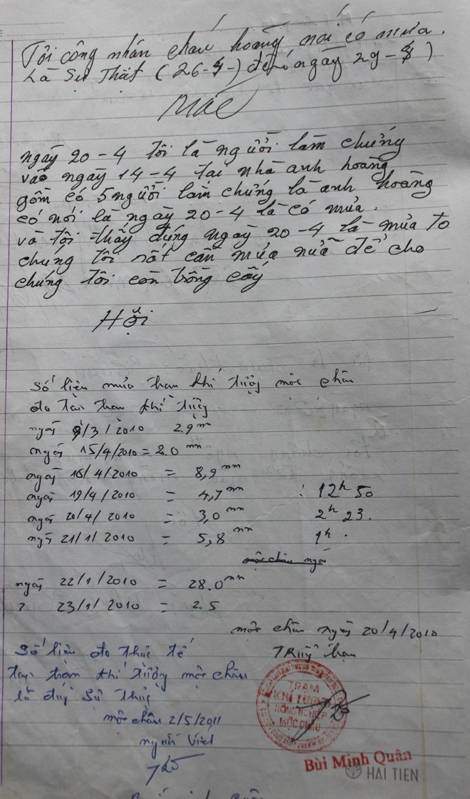 Tôi công nhân cháu hoàng nói có mưa.
Là Sự Thật (26-4-) đến ngày 29-4)
ngày 20-4 tôi là người làm chứng
vào ngày 14-4 tai nhà anh hoàng
gồm có 5 người làm chứng là anh hoàng
có nói là ngày 20-4 là có mưa.
và tôi thấy đúng ngay 20-4 là mưa to
chung tôi rất cần mưa nưã để cho
chúng tôi còn trồng cấy
Hợi
Số liệu mưa trạm khí tượng mộc châu
đo tại trạm khí tượng
ngày /3/2010 2.9 mm
ngày 15/4/2010 = 2.0 mm
ngày 16/4/2010 = 8,9 mm
ngày 19/4/2010 = 4,7 mm : 12h 50
ngày 20/4/2010 = 3,0 mm 2h 23.
ngày 21/1/2010 = 5,8 mm 1h.
mộc châu ngày
ngày 22/1/2010 = 28.0 mm
? 23/1/2010 = 2.5
mộc châu ngày 20/4/2010
Số liệu đo thực tế
tại trạm khí tượng mộc châu
là đúng Sự Thực
mộc châu 2/5/2011
người Viết
TRẠM
KHÍ TƯỢNG
NÔNG NGHIỆP
MỘC CHÂU
Bùi Minh Quân
HẢI TIẾN